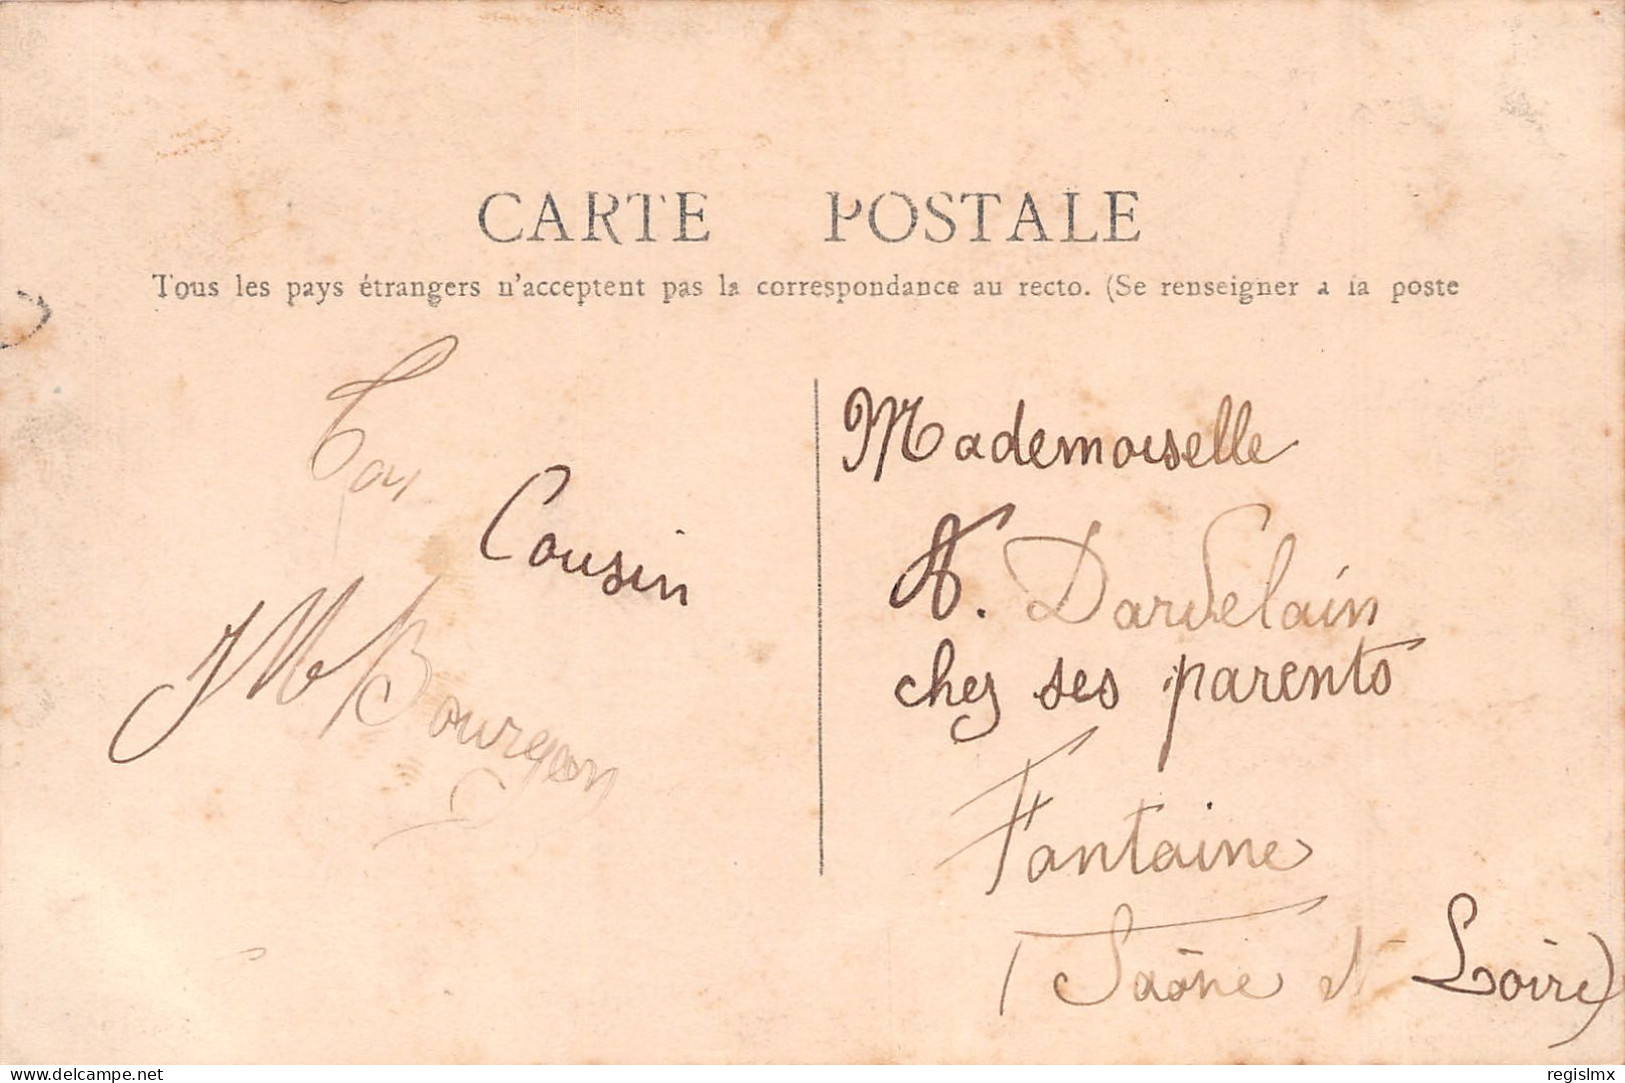 CARTE POSTALE
Tous les pays étrangers n'acceptent pas la correspondance au recto. (Se renseigner a la poste
Ton
Cousin
Mademoiselle
A. Darvelain
chez ses parents
Fontaine
(Saône et Loire)
delcampe.net
regislmx